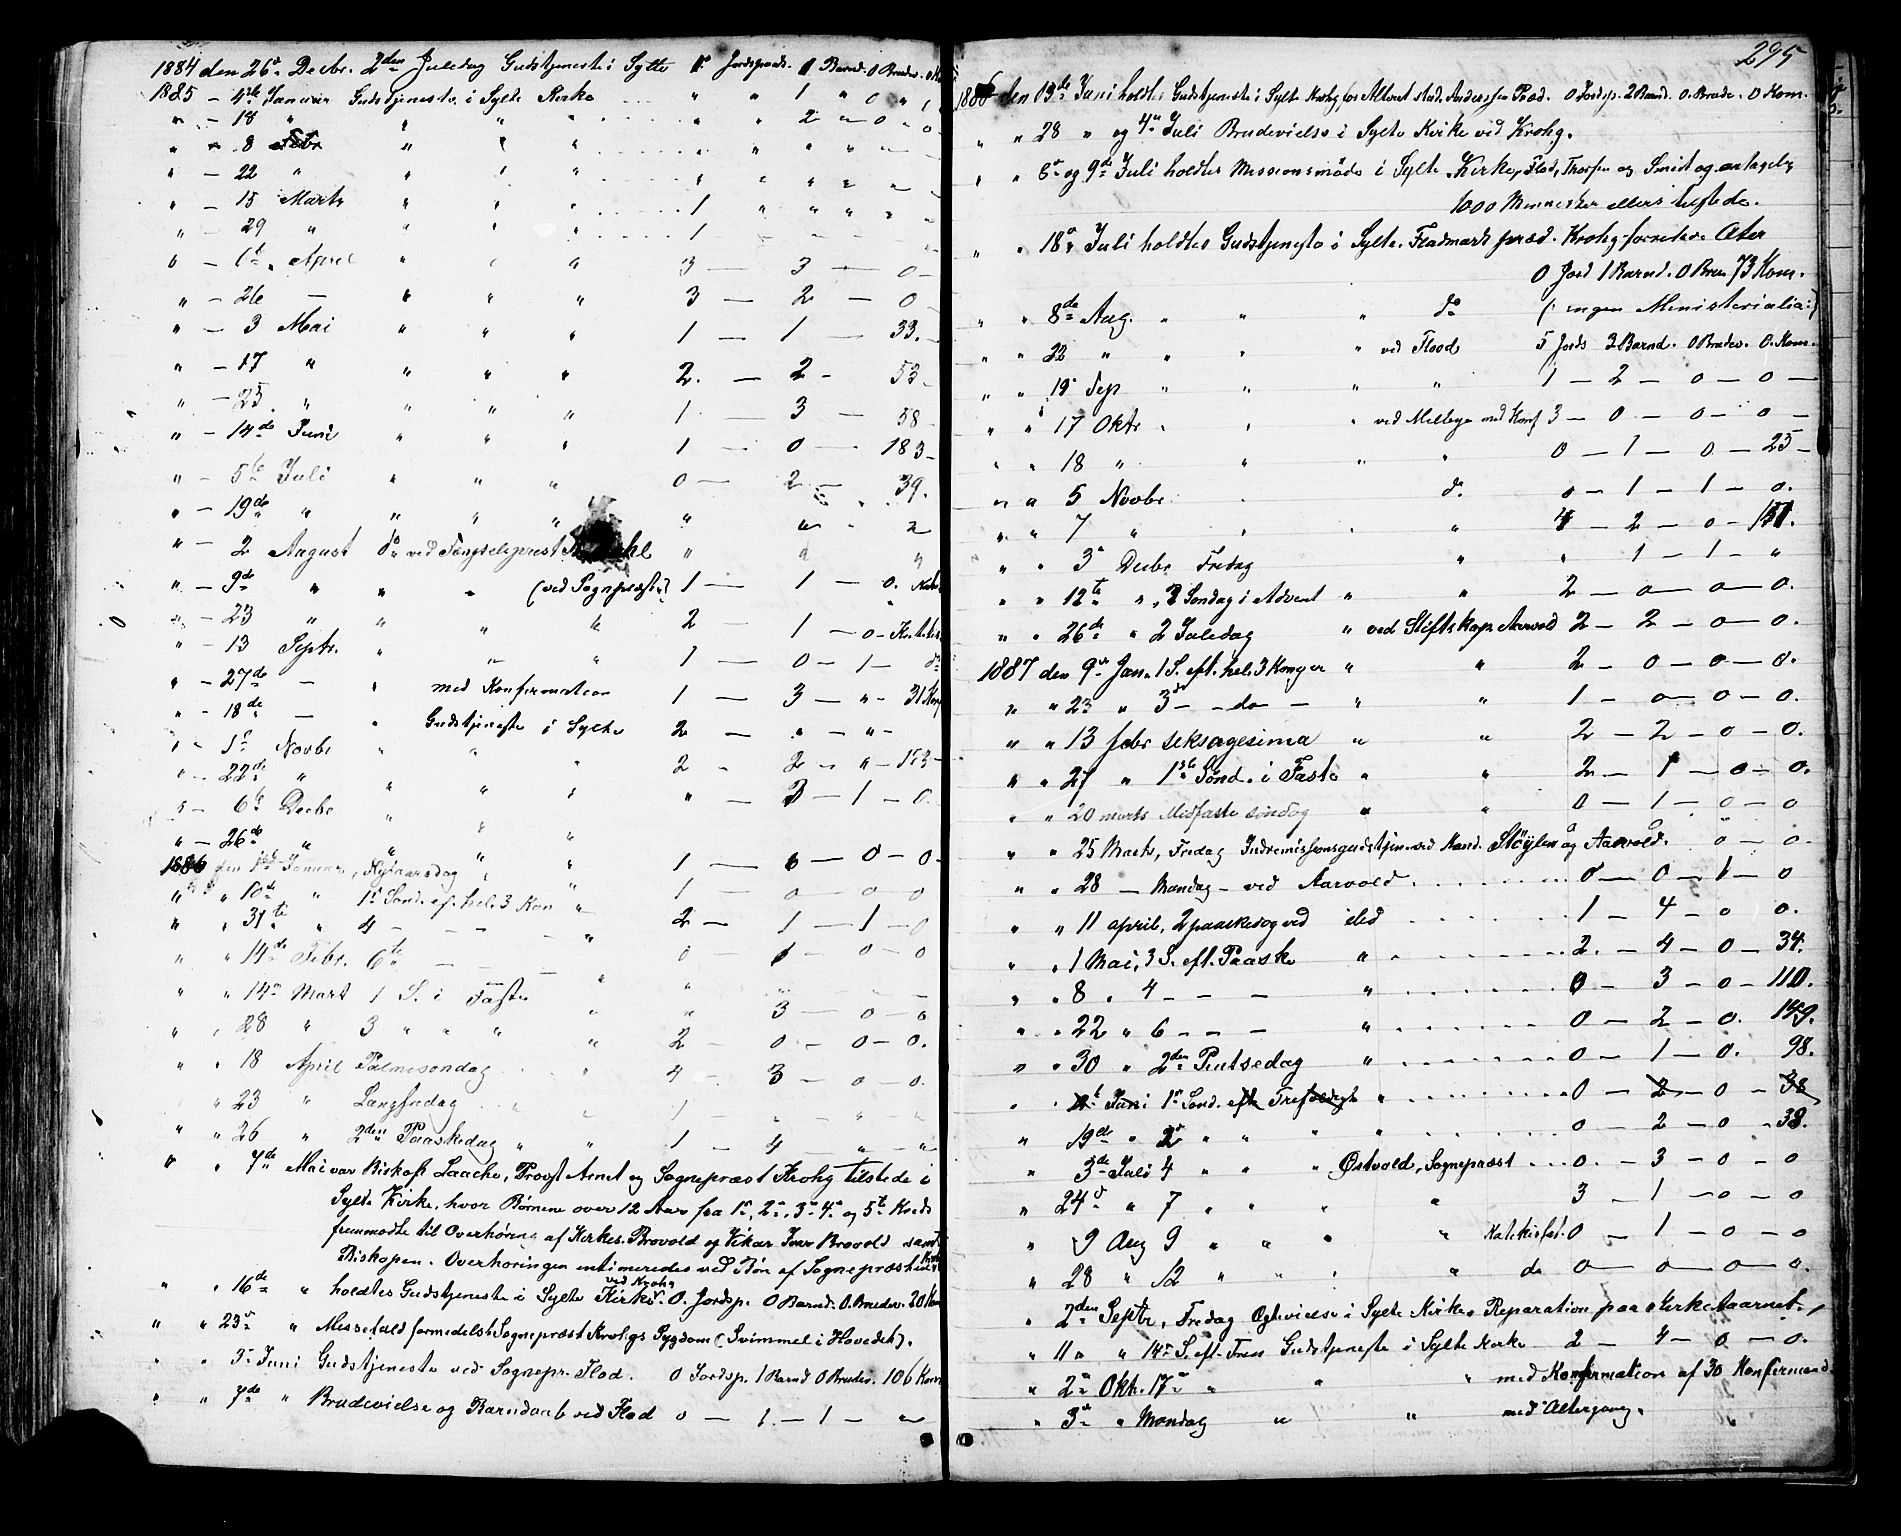 1884 den 26 Decbr. 2den Juledag Gudstjeneste i Sylte Jordspaak. Barnd. 0 Brudev.
1885 – 4de Januar Gudstjeneste i Sylte Kirke " " 1 " 0 "
" – 18 " " " " " " 2 – 0 –
" – 8 Febr " " "
" – 22 " " " "
" – 15 Marts " " " 1 " " "
" – 29 " " " " 1 – –
" – 6te April " " " 3 – 3 – 0 –
" – 26 – " " " 3 – 2 – 0
" – 3 Mai " " " 1 – 1 – 33.
" – 17 " " " " 2. – 2 – 53 –
" – 25. " " " " 1 – 3 – 58 –
" – 14de Juni " " " 1 – 0 – 183 –
" – 5te Juli " " " 0 – 2 – 39.
" – 19de " " " " " " "
" – 2 August do ved Fængselsprest " " "
" – 9de " " " (ved Sognepræst) 1 – 1 – 0.
" – 23 " " " " 2 – 1 – 0 –
" – 13 Septr. " " " 1 – 0 – 1 –
" – 27de – " med Konfirmation 1 – 3 – " – 31
" – 18de – " Gudstjeneste i Sylte 2 – " – " –
" – 1 Novbr " " " 2 – 2 – " –
" – 22de " " " " " – 3 – 1 – 0.
" – 6te Decbr " " "
" – 26de " " " "
1886 den 1ste Januar, Nytaarsdag " " 1 – 0 – 0 – 0.
" " 10de " 1 Sønd. ef. hel. 3 Kon " 1 – 0 0 0
" " 31te " 4 – – – " 2 – 1 – 1 – 0
" " 14de Febr. 6te – – – " 0 1 – 0 – 0
" " 14 Mart 1 S. i Faste " " 3 – 0 – 0
" " 28 " 3 " " " " 2 – 0 – 0 – 0.
" " 18 April Palmesøndag 4 – 3 – 0 – 0.
" " 23 " Langfredag " " 1 – " – " – "
" " 26 " 2den Paaskedag " " 1 – 4 " – "
" " 7de Mai var Biskop Laache, Provst Arnet og Sognepræst Krohg tilstede i
Sylte Kirke, hvor Børnene over 12 Aar fra 1, 2, 3, 4 og 5te Kreds
fremmødte til Overhøring af Kirkes. Brovold og Vikar Iver Brovold samt
Biskopen. Overhøringen intimeredes ved Bøn af Sognepræsten
ved Krohg
" " 16de " holdtes Gudstjeneste i Sylte Kirke. 0. Jordsp. 0 Barnd. 0. Brudev. 20 Kom
" " 23 " Messefald formedelst Sognepræst Krohgs Sygdom (Svimmel i Hovedet).
" " 3 Juni Gudstjeneste ved Sognepr. Flod. 0 Jordsp. 1 Barnd 0 Brudev. 106 Kom
" " 7de " Brudevielse og Barndaab ved Flod 0 – 1. – 1 – "
295
1886 den 13de Juni holdt Gudstjeneste i Sylte Krohg for Alteret stud. Anderssen Præd. 0 Jordsp. 2 Barnd. 0. Brude. 0 Kom.
" " 28 " og 4 Juli Brudevielse i Sylte Kirke ved Krohg.
" " 6 og 9de Juli holdtes Missionsmøde i Sylte Kirke, Flod, og antagelig
1000 Mennesker ellers tilstede.
" " 18 Juli holdtes Gudstjeneste i Sylte. Fladmark præd. Krohg forrettede Alter
0 Jord 1 Barnd. 0 Bru 73 Kom.
" " 8de Aug. " " do (: ingen Ministerialia :)
" " 22 " " " " ved Flood 5 Jords 2 Barnd. 0 Brudev. 0. Kom.
" " 19 Sep " " " " 1 – 2 – 0 – 0 –
" " 17 Oktr " " " ved Melbye med Konf 3 – 0 – 0 – 0 –
" " 18 " " " " 0 – 1 – 0 – 25 –
" " 5 Novbr " do 0 – 1 – 1 – 0.
" " 7 " " " " 4 – 2 – 0 –
" " 3 Decbr Fredag " " 1 – 1 – "
" " 12te " 3 Søndag i Advent " " 2 – 0 – 0 – 0.
" " 26de " 2 Juledag " ved Stiftskap. Aarvold 2 – 2 – 0 – 0.
1887 den 9 Jan. 1 S. eft. hel. 3 Konger " " 2 – 0 – 0 – 0.
" " 23 " 3 – do – " " 1 – 0 – 0 – 0.
" " 13 febr seksagesima " " 2 – 2 – 0 – 0.
" " 27 " 1ste Sønd. i Faste " " 2 – 1 – 0 – 0.
" " 20 marts Midfaste søndag " " 0 – 1 – 0 – 0
" " 25 Marts, Fredag Indremissionsgudstjen. ved Kand. Støylen og Aarvold. 0 – 0.
" " 28 – Mandag – ved Aarvold 0 – 0 – 1 – 0
" " 11 april, 2 paaskedag ved do 1 – 4 – 0 0.
" " 1 Mai, 3 S. eft. Paaske " 2. – 4 – 0 – 34.
" " 8 " 4 – – – " 0 – 3 – 0 – 110.
" " 22 " 6 – – – " 0 – 2 – 0. 149.
" " 30 " 2den Pintsedag " 0 – 1 – 0. 98.
" " Juni 1 Sønd. efter Trefoldigh " 0 – 2 – 0 – 38
" 19de " 2 " " " " 0 – 2 – 0 – 38.
" 3de Juli 4 " " " Østvold, Sognepræst 0. – 3 – 0 – 0
" 24 " 7 " " " " 3 – 1 – 0 – 0
" 9 Aug 9 " " " " Katekisat. 0 – 1 – 0 – 0
" 28 " 12 " " " " do 0 – 0 – 0 – 0.
" 2den Septr, Fredag Ægtevielse i Sylte Kirke. Reparation paa Kirketaarnet.
" 11 " " 14 S. eft. Tref Gudstjeneste i Sylte Kirke 2 – 4 – 0 – 0.
" 2 Okt. 17 " " " med Konfirmation af 30 Konfirmand
" 3 " Mandag " " med Altergang.